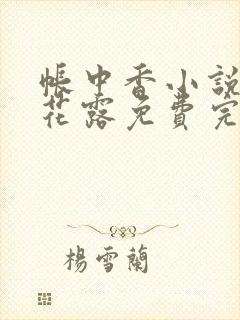 帳中香小說
花露免費完
楊雪蘭